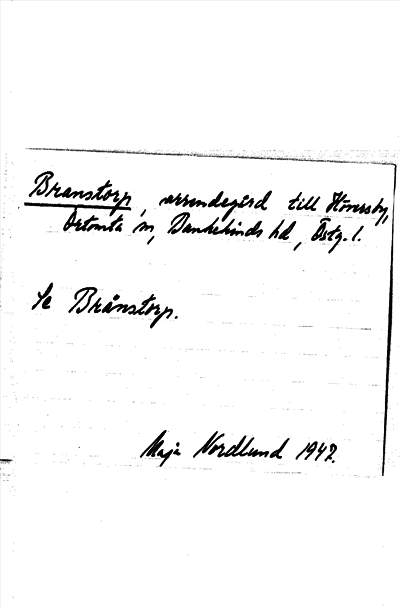 Branstorp, arrendegård till Hönersby,
Örtomta sn, Bankekinds hd, Östg. l.
Se Brånstorp.
Maja Nordlund 1942.